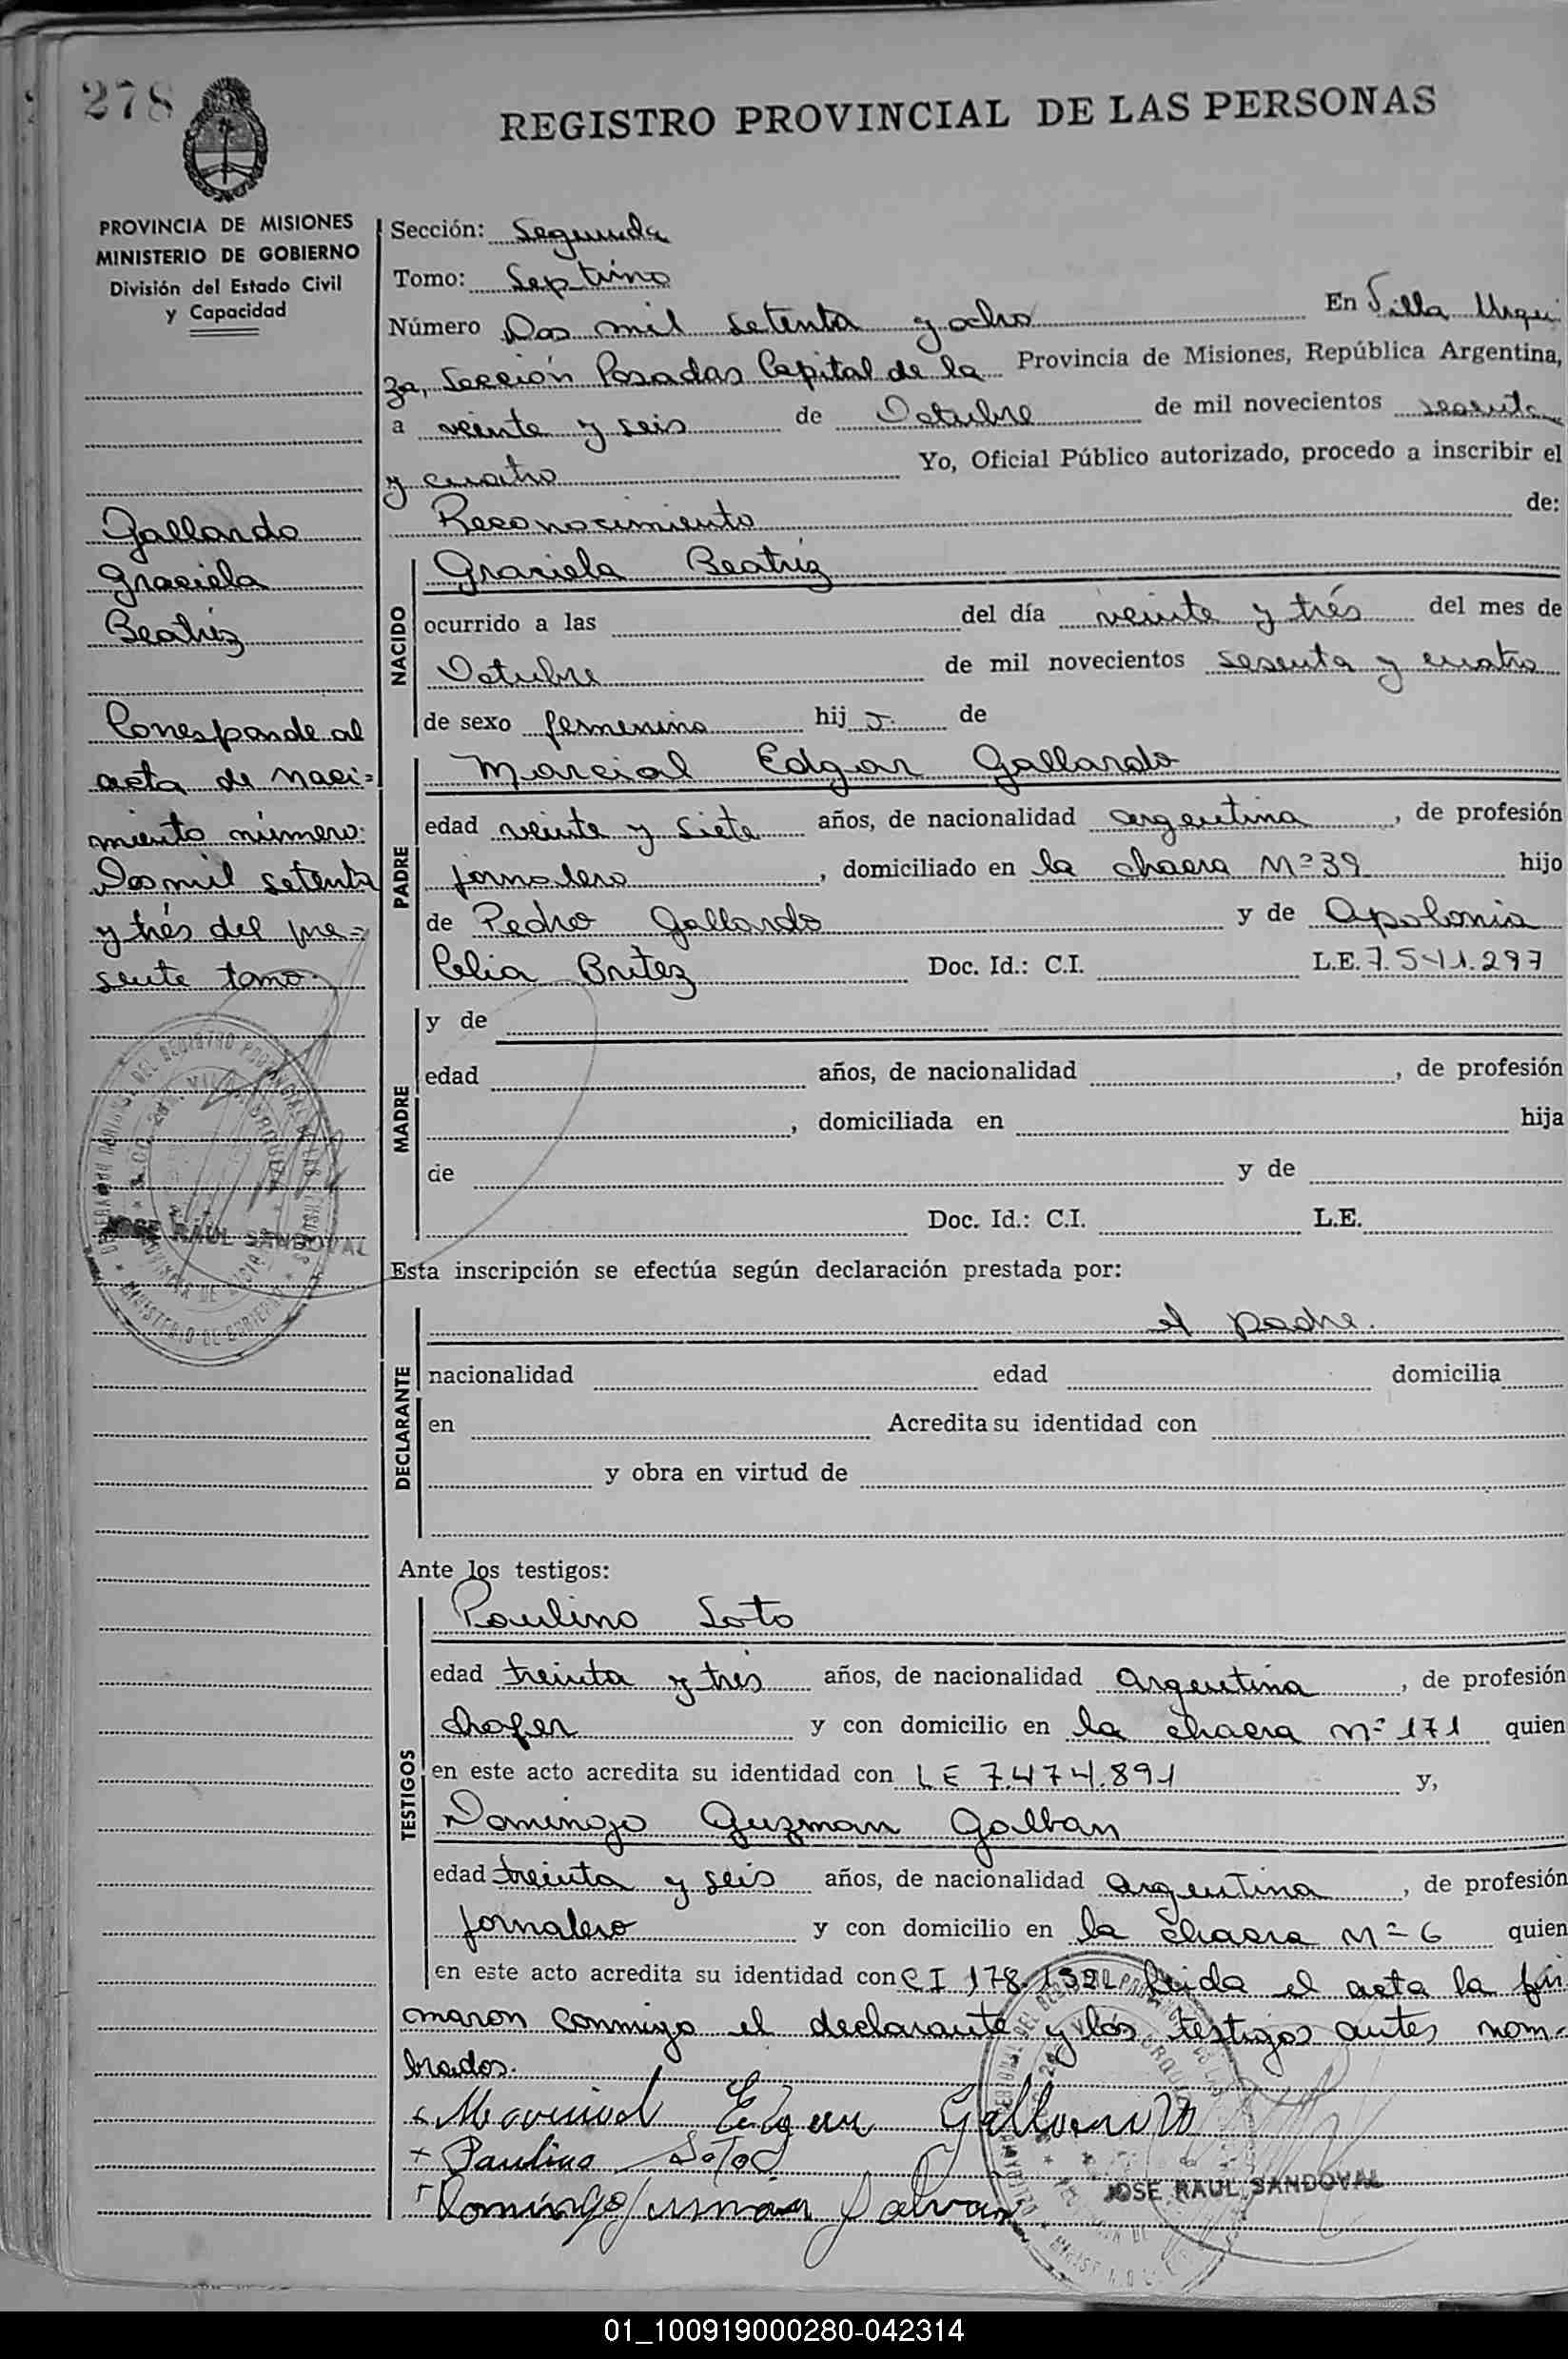 278
REGISTRO PROVINCIAL DE LAS PERSONAS
PROVINCIA DE MISIONES
MINISTERIO DE GOBIERNO
División del Estado Civil
y Capacidad
Gallardo
Graciela
Beatriz
Corresponde al
acta de naci=
miento número:
Dos mil setenta
y trés del pre=
sente tomo.
JOSE RAUL SANDOVAL
Sección: Segunda
Tomo: Septimo
Número Dos mil setenta y ocho En Villa Urqui
za, Sección Posadas Capital de la Provincia de Misiones, República Argentina,
a veinte y seis de Octubre de mil novecientos sesenta
y cuatro Yo, Oficial Público autorizado, procedo a inscribir el
Reconocimiento de:
NACIDO
Graciela Beatriz
ocurrido a las del día veinte y trés del mes de
Octubre de mil novecientos sesenta y cuatro
de sexo femenino hij de
PADRE
Marcial Edgar Gallardo
edad veinte y siete años, de nacionalidad argentina, de profesión
jornalero, domiciliado en la chacra Nº 39 hijo
de Pedro Gallardo y de Apolonia
Celia Britez Doc. Id.: C.I. L.E. 7.541.297
MADRE
y de
edad años, de nacionalidad , de profesión
, domiciliada en hija
de y de
Doc. Id.: C.I. L.E.
Esta inscripción se efectúa según declaración prestada por:
DECLARANTE
el padre.
nacionalidad edad domicilia
en Acredita su identidad con
y obra en virtud de
Ante los testigos:
TESTIGOS
Paulino Soto
edad treinta y tres años, de nacionalidad argentina, de profesión
chofer y con domicilio en la chacra Nº 171 quien
en este acto acredita su identidad con LE 7.474.891 y,
Domingo Guzman Galban
edad treinta y seis años, de nacionalidad argentina, de profesión
jornalero y con domicilio en la chacra Nº 6 quien
en este acto acredita su identidad con CI Leida el acta la fir
maron conmigo el declarante y los testigos antes nom-
brados.
Marcial Edgar Gallardo
+ Paulino Soto
Domingo Gusman Galvan
JOSE RAUL SANDOVAL
01_100919000280-042314